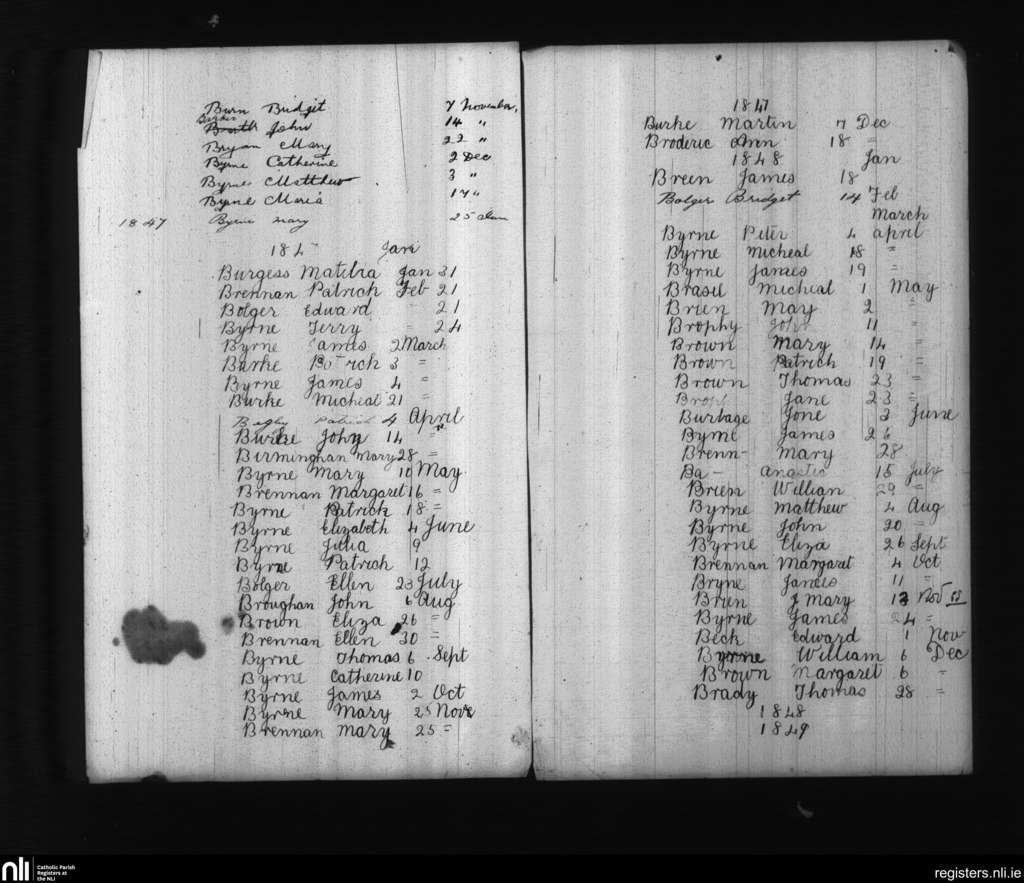 Burn Bridget 7 November,
Burke
John 14 "
Bryan Mary 22 "
Byrne Catherine 2 Dec
Byrne Matthew 3 "
Byrne Maria 17 "
1847 Byrne Mary 25 Jan
184 Jan
Burgess Matilda Jan 31
Brennan Patrick Feb 21
Bolger Edward " 21
Byrne Terry " 24
Byrne James 2 March
Burke Patrick 3 "
Byrne James 4 "
Burke Micheal 21 "
Patrick 4 April
Burke John 14 "
Birminghan Mary 28 =
Byrne Mary 10 May
Brennan Margaret 16 =
Byrne Patrick 18 =
Byrne Elizabeth 4 June
Byrne Julia 9
Byrne Patrick 12
Bolger Ellen 23 July
Broughan John 6 Aug
Brown Eliza 26 =
Brennan Ellen 30 =
Byrne Thomas 6 Sept
Byrne Catherine 10
Byrne James 2 Oct
Byrne Mary 25 Nov
Brennan Mary 25 =
1847
Burke Martin 7 Dec
Broderic Ann 18 =
1848 Jan
Breen James 18
Bolger Bridget 14 Feb
March
Byrne Peter 4 April
Byrne Micheal 18 "
Byrne James 19 =
Brasil Micheal 1 May
Brien Mary 2 "
Brophy John 11 "
Brown Mary 14 =
Brown Patrick 19 =
Brown Thomas 23 =
Jane 23 "
Burbage Jone 3 June
Byrne James 26
Brenn- Mary 28
Ba- 15 July
Brien William 29 =
Byrne Matthew 4 Aug
Byrne John 20 =
Byrne Eliza 26 Sept
Brennan Margaret 4 Oct
Bryne James 11 "
Brien J Mary 12 Nov
Byrne James 24 =
Beck Edward 1 Nov
Byrne William 6 Dec
Brown Margaret 6 =
Brady Thomas 28 =
1848
1849
nli Catholic Parish
Registers at
the NLI
registers.nli.ie